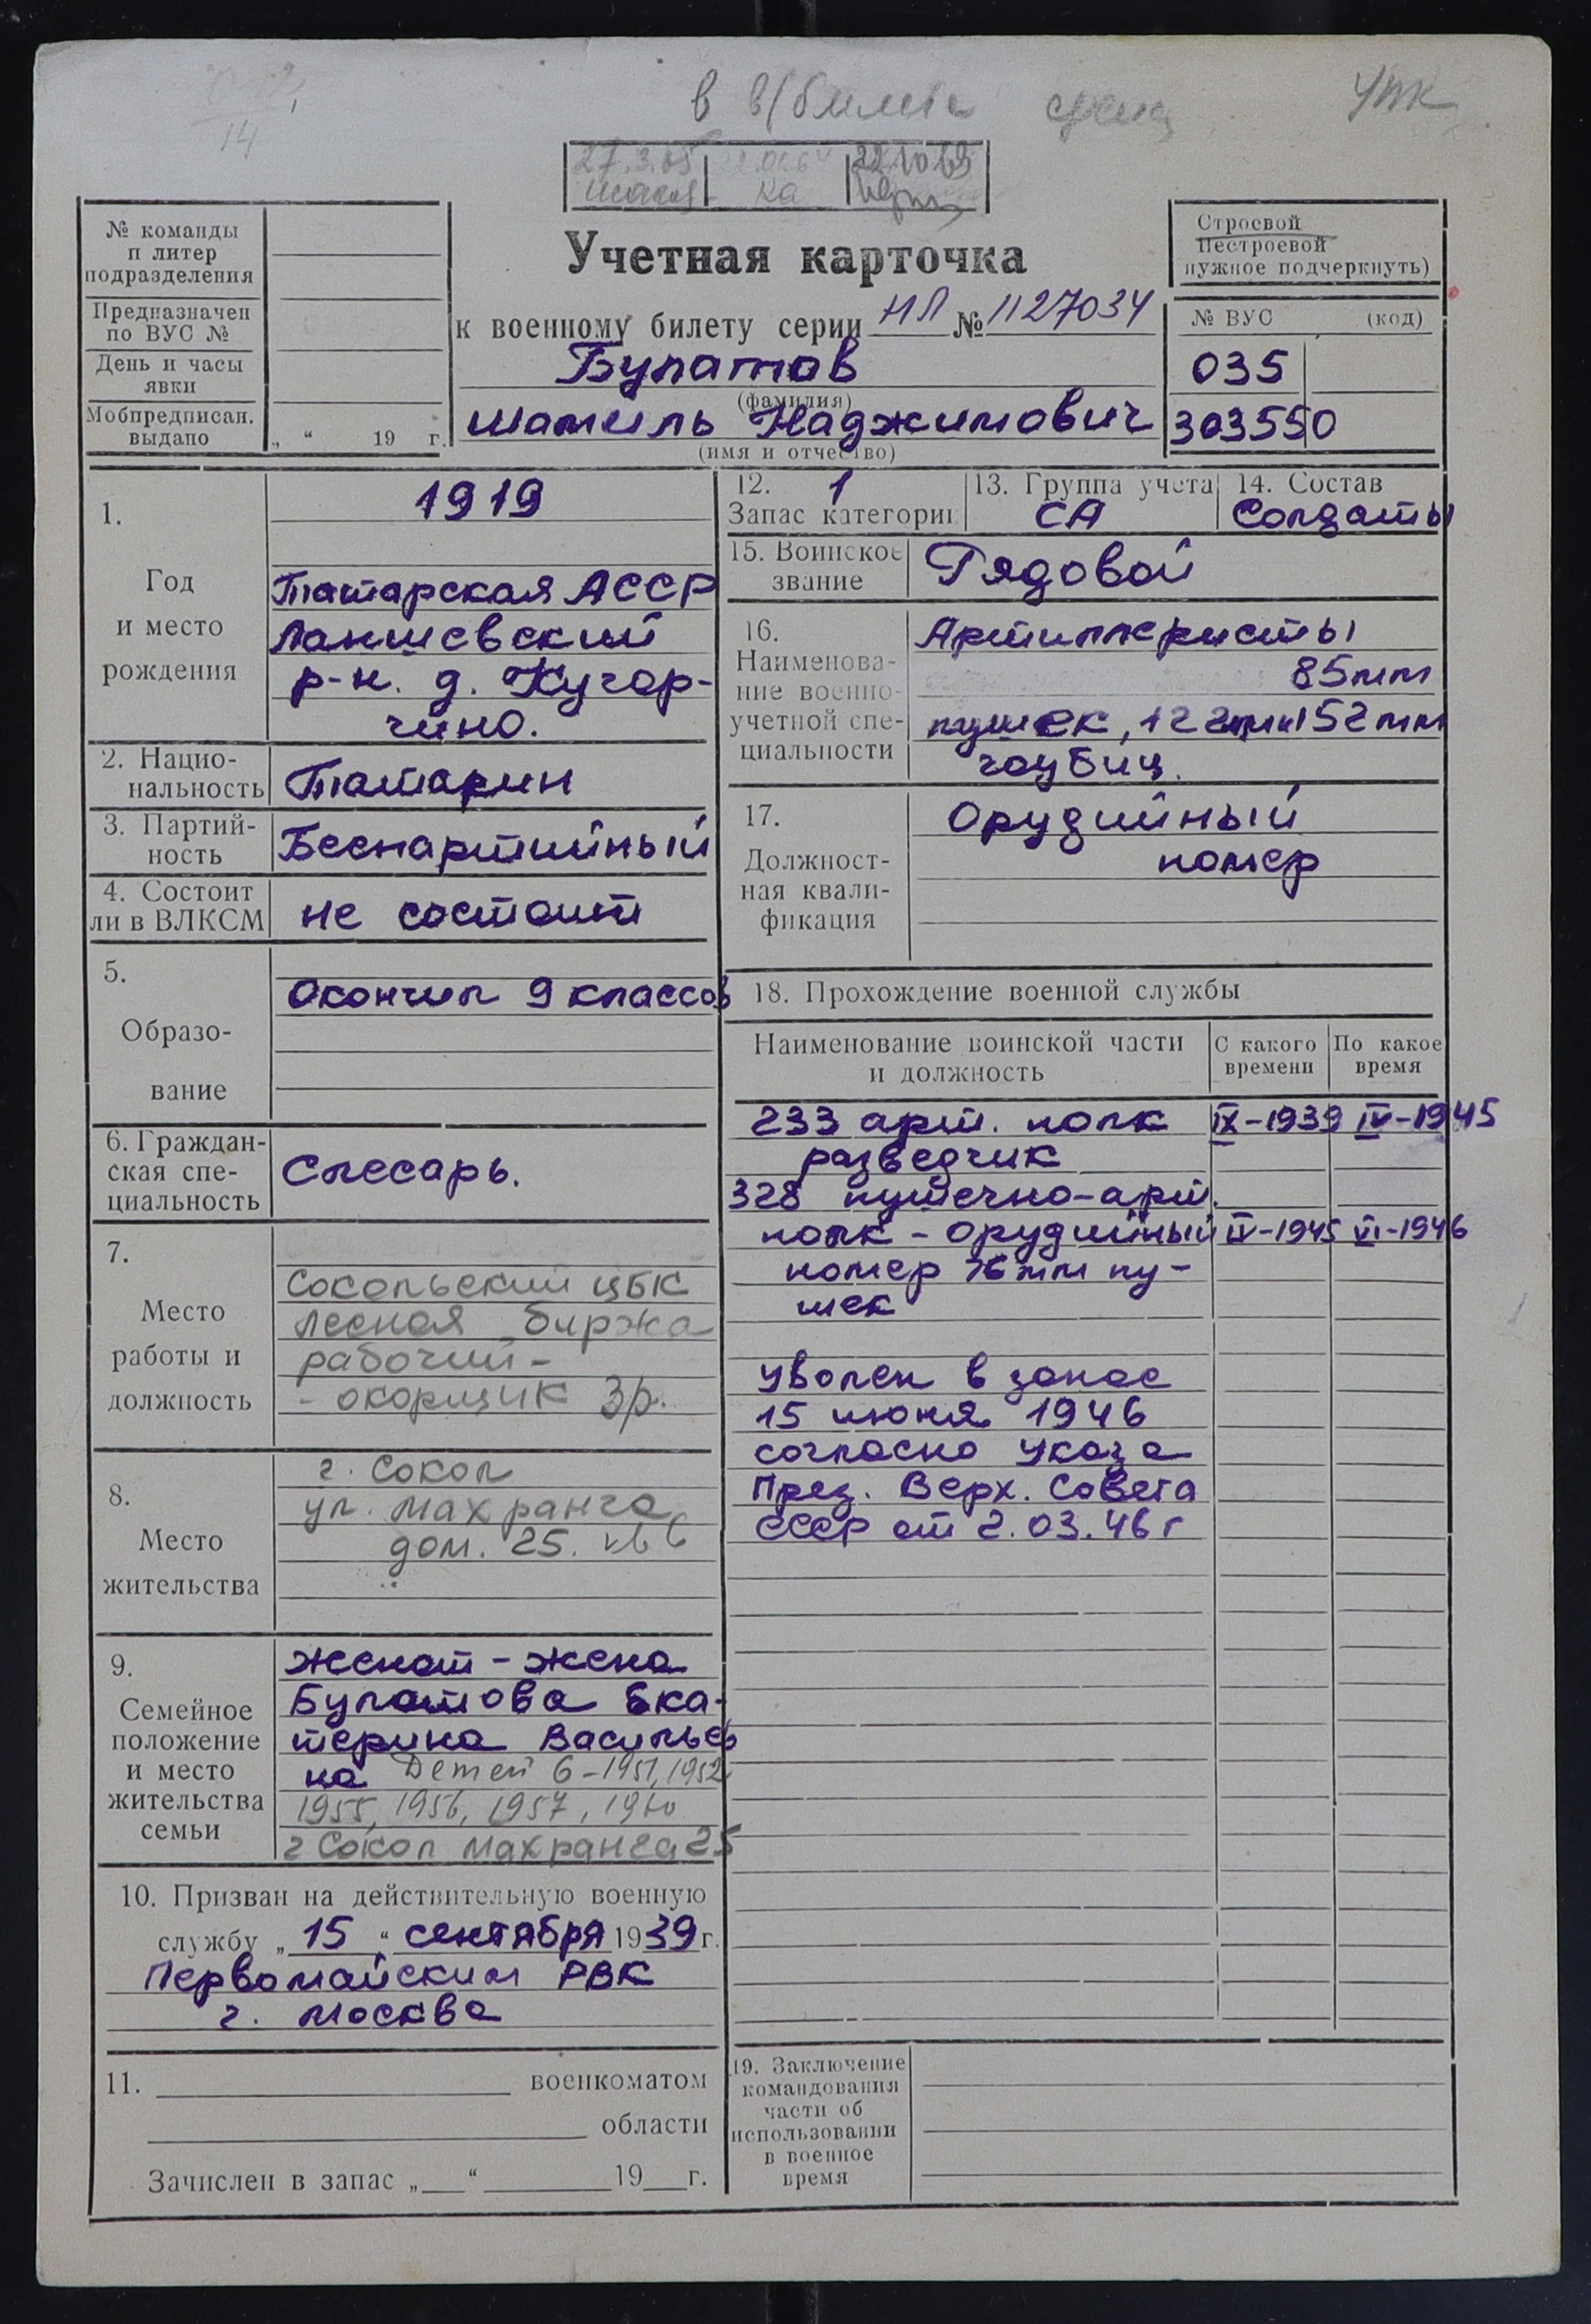 14
в в/билете УПК
27.3.65 22.10.69
№ команды
и литер
подразделения
Предназначен
по ВУС №
День и часы
явки
Мобпредписан.
выдано „ “ 19 г.
Учетная карточка
к военному билету серии НЛ № 1127034
Булатов
(фамилия)
Шамиль Наджимович
(имя и отчество)
Строевой
Нестроевой
нужное подчеркнуть)
№ ВУС (код)
035
303550
1.
Год
и место
рождения
1919
Татарская АССР
Лаишевский
р-н. д. Кугар-
чино.
2. Нацио-
нальность
Татарин
3. Партий-
ность
Беспартийный
4. Состоит
ли в ВЛКСМ
не состоит
5.
Образо-
вание
Окончил 9 классов
6. Граждан-
ская спе-
циальность
Слесарь.
7.
Место
работы и
должность
Сокольский ЦБК
лесная биржа
рабочий-
- окорщик 3р.
8.
Место
жительства
г. Сокол
ул. Махранга
дом. 25. кв 6
9.
Семейное
положение
и место
жительства
семьи
женат - жена
Булатова Ека-
терина Васильев
на Детей 6 - 1951, 1952
1955, 1956, 1957, 1960
г Сокол Махранга 25
10. Призван на действительную военную
службу „ 15 “ сентября 1939 г.
Первомайским РВК
г. Москва
11. военкоматом
области
Зачислен в запас „ “ 19 г.
12. 1
Запас категории
13. Группа учета
СА
14. Состав
Солдаты
15. Воинское
звание
Рядовой
16.
Наименова-
ние военно-
учетной спе-
циальности
Артиллеристы
85мм
пушек, 122мм и 152мм
гаубиц.
17.
Должност-
ная квали-
фикация
Орудийный
номер
18. Прохождение военной службы
Наименование воинской части
и должность
С какого
времени
По какое
время
233 арт. полк IX-1939 IV-1945
разведчик
328 пушечно-арт.
полк - Орудийный IV-1945 VI-1946
номер 76мм пу-
шек
Уволен в запас
15 июня 1946
согласно Указа
През. Верх. Совета
СССР от 2.03.46 г
19. Заключение
командования
части об
использовании
в военное
время